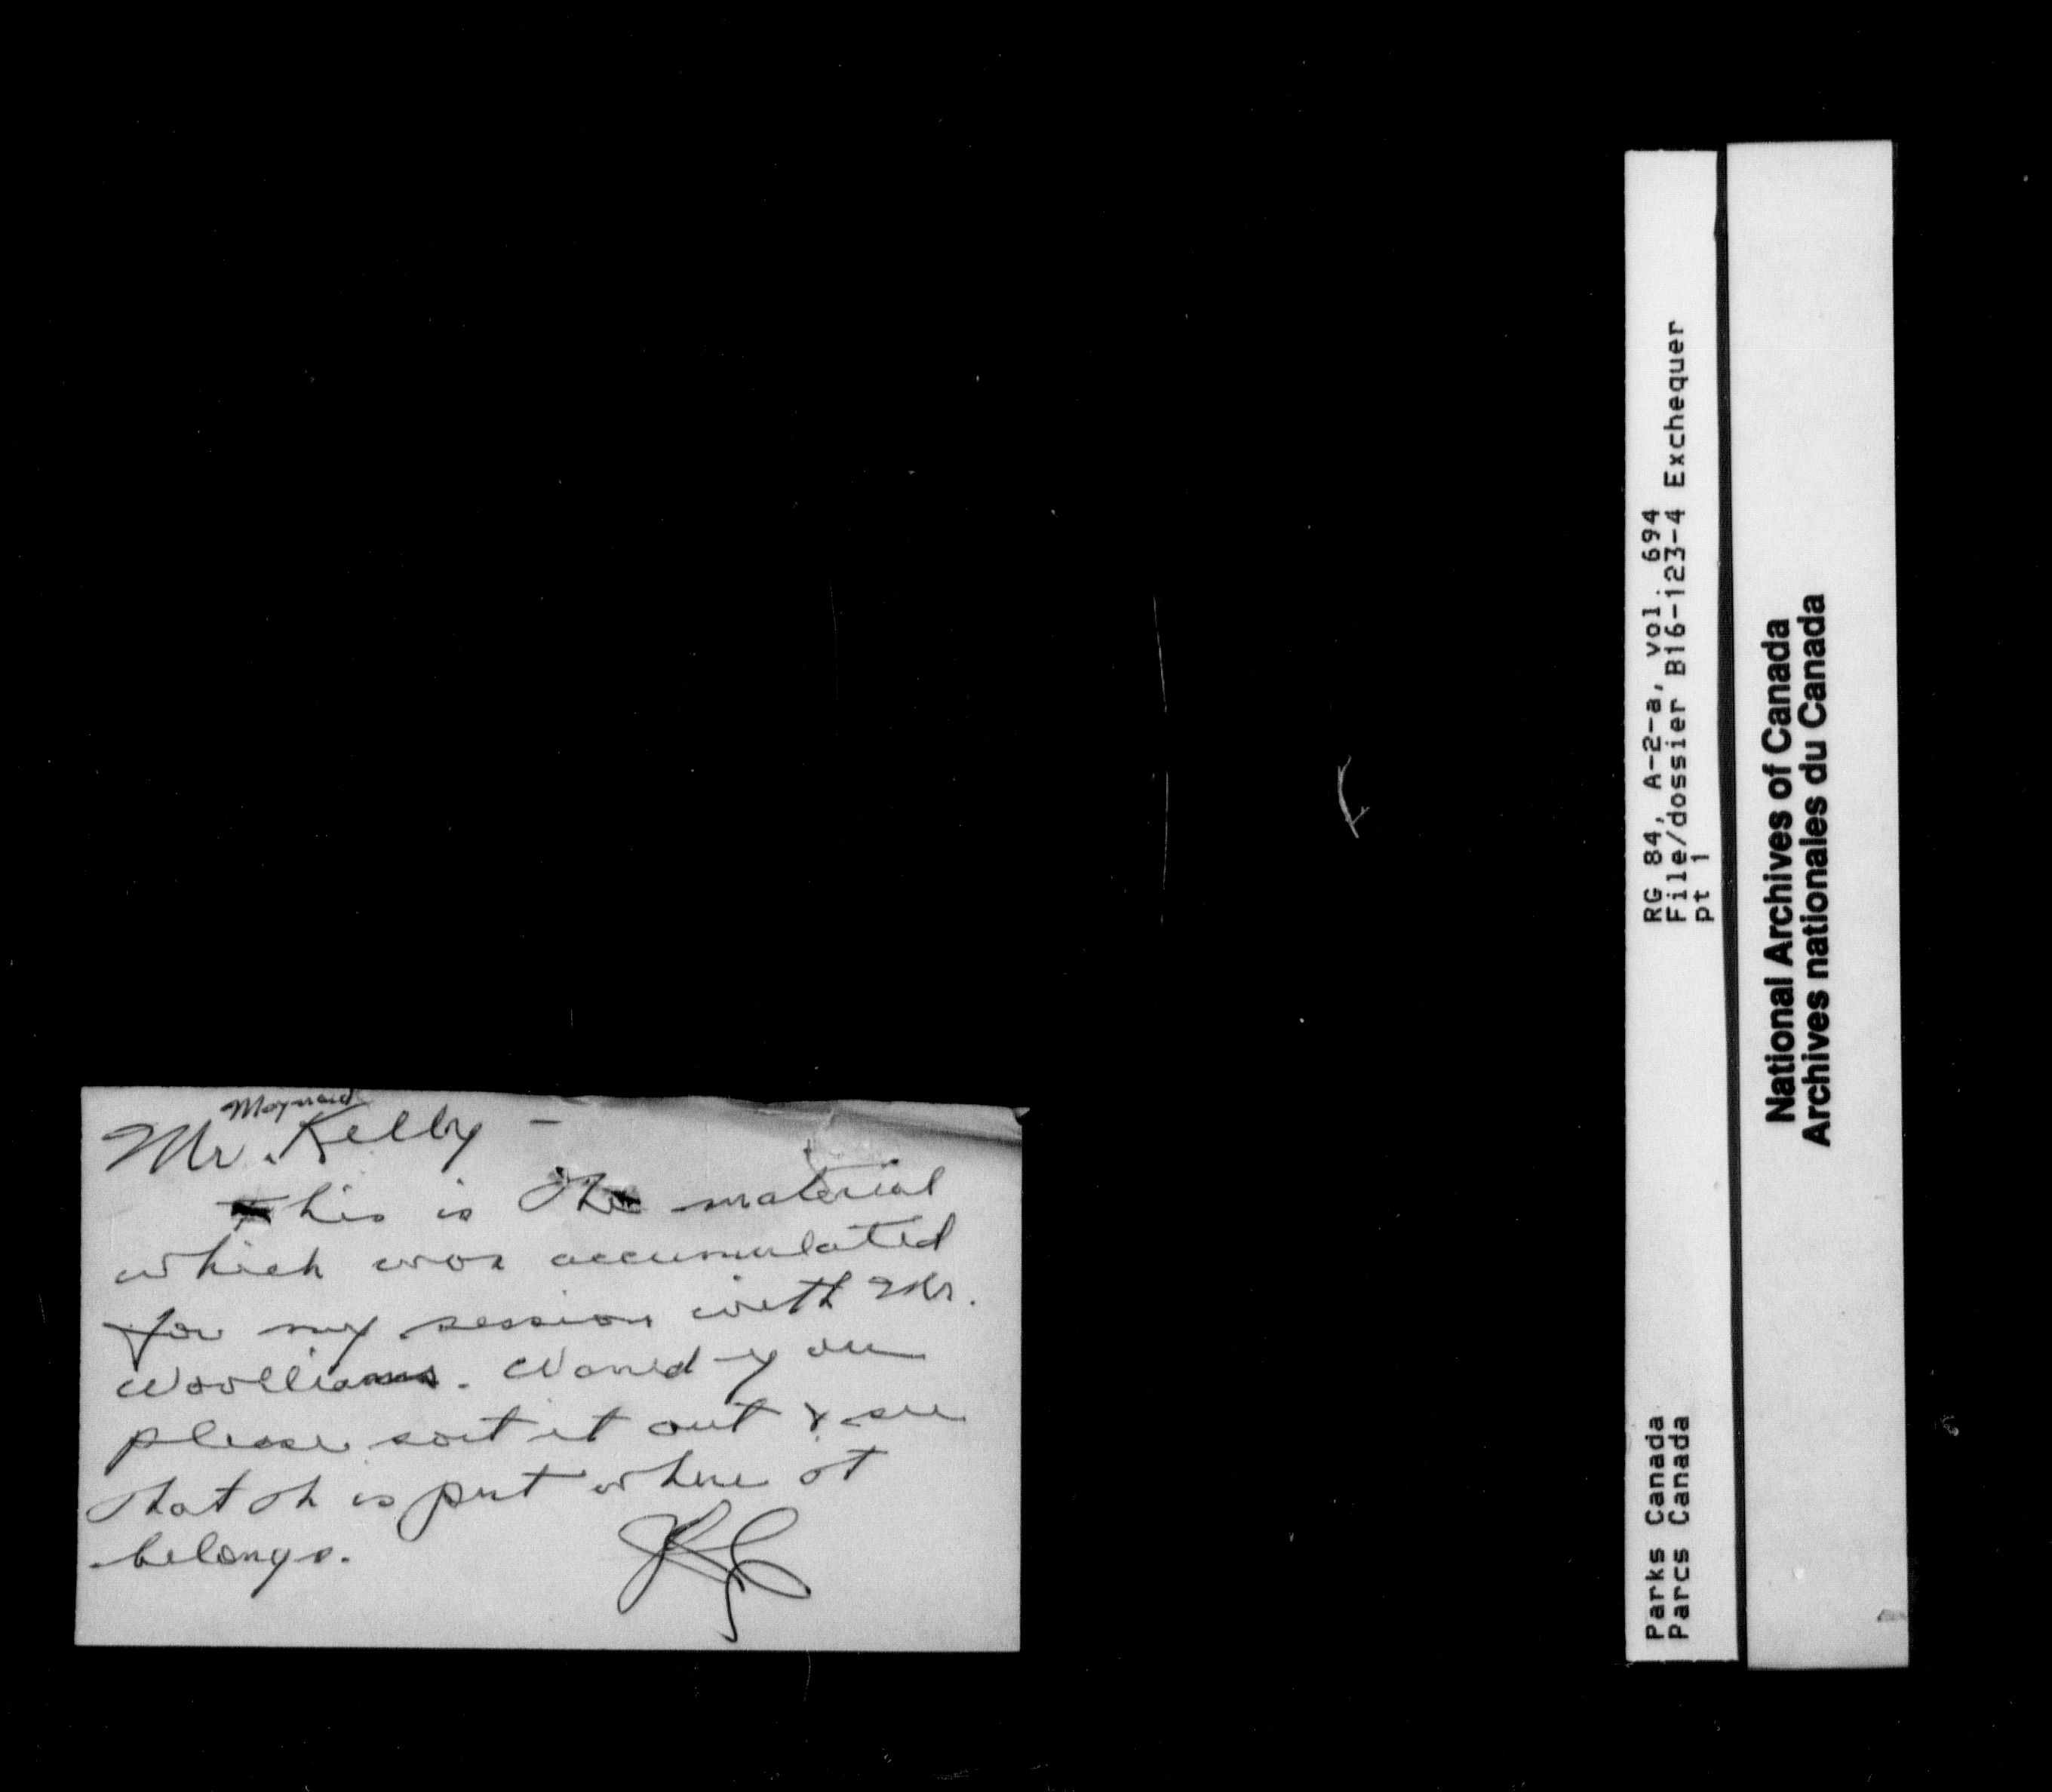 Maynard
Mr. Kelly –
This is the material
which was accumulated
for my session with Mr.
Woolliams. Would you
please sort it out & see
that it is put where it
belongs.
RG 84, A-2-a, vol. 694
File/dossier B16-123-4 Exchequer
pt 1
Parks Canada
Parcs Canada
National Archives of Canada
Archives nationales du Canada